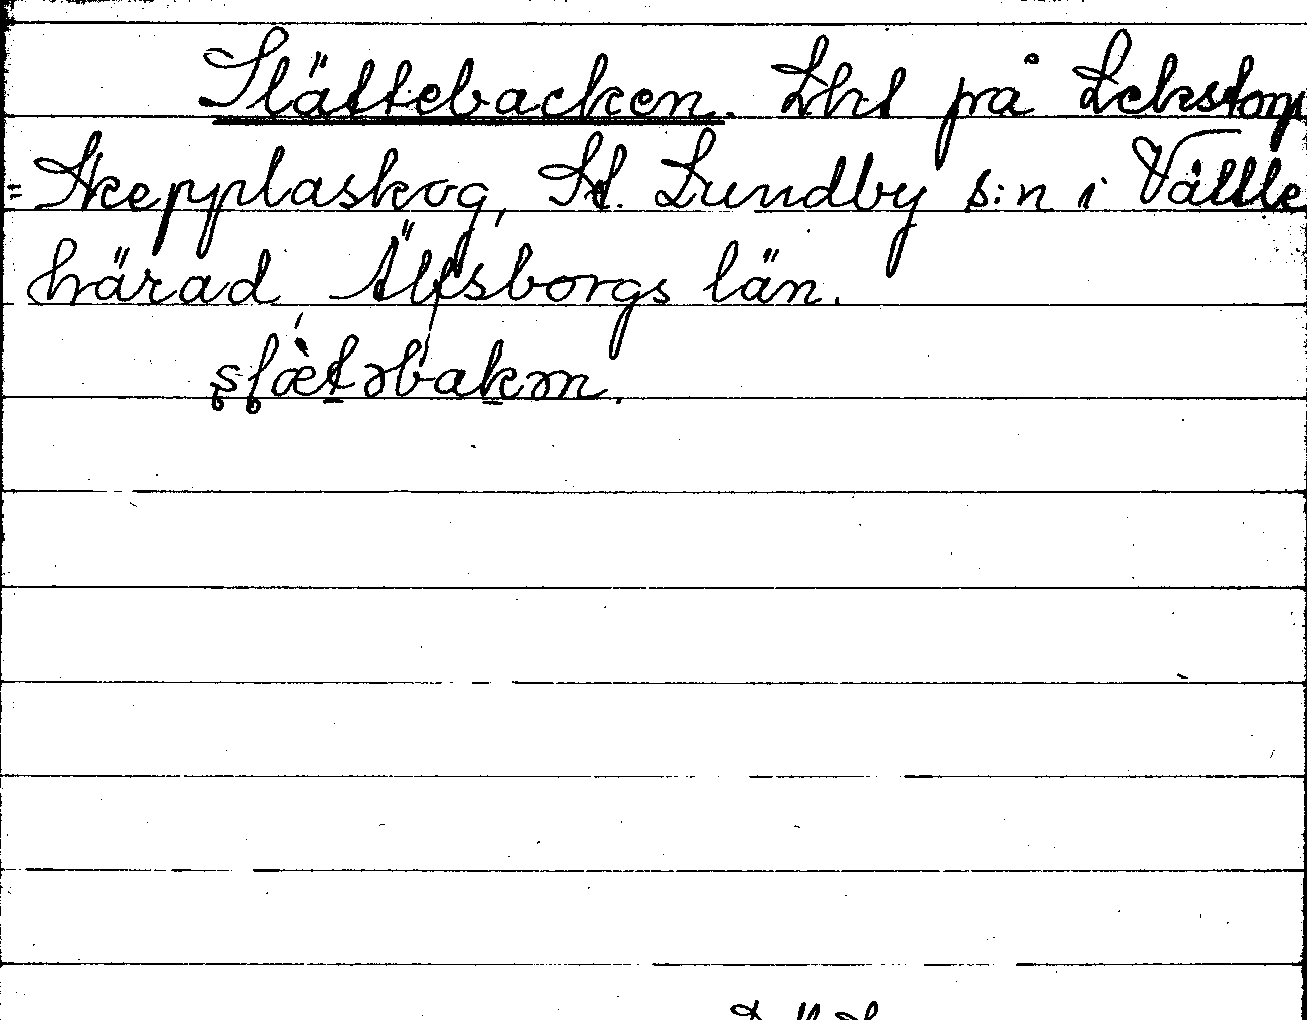 Slättebacken. Lht på Lekstorp
= Skepplaskog, St. Lundby s:n i Vättle
härad Älvsborgs län.